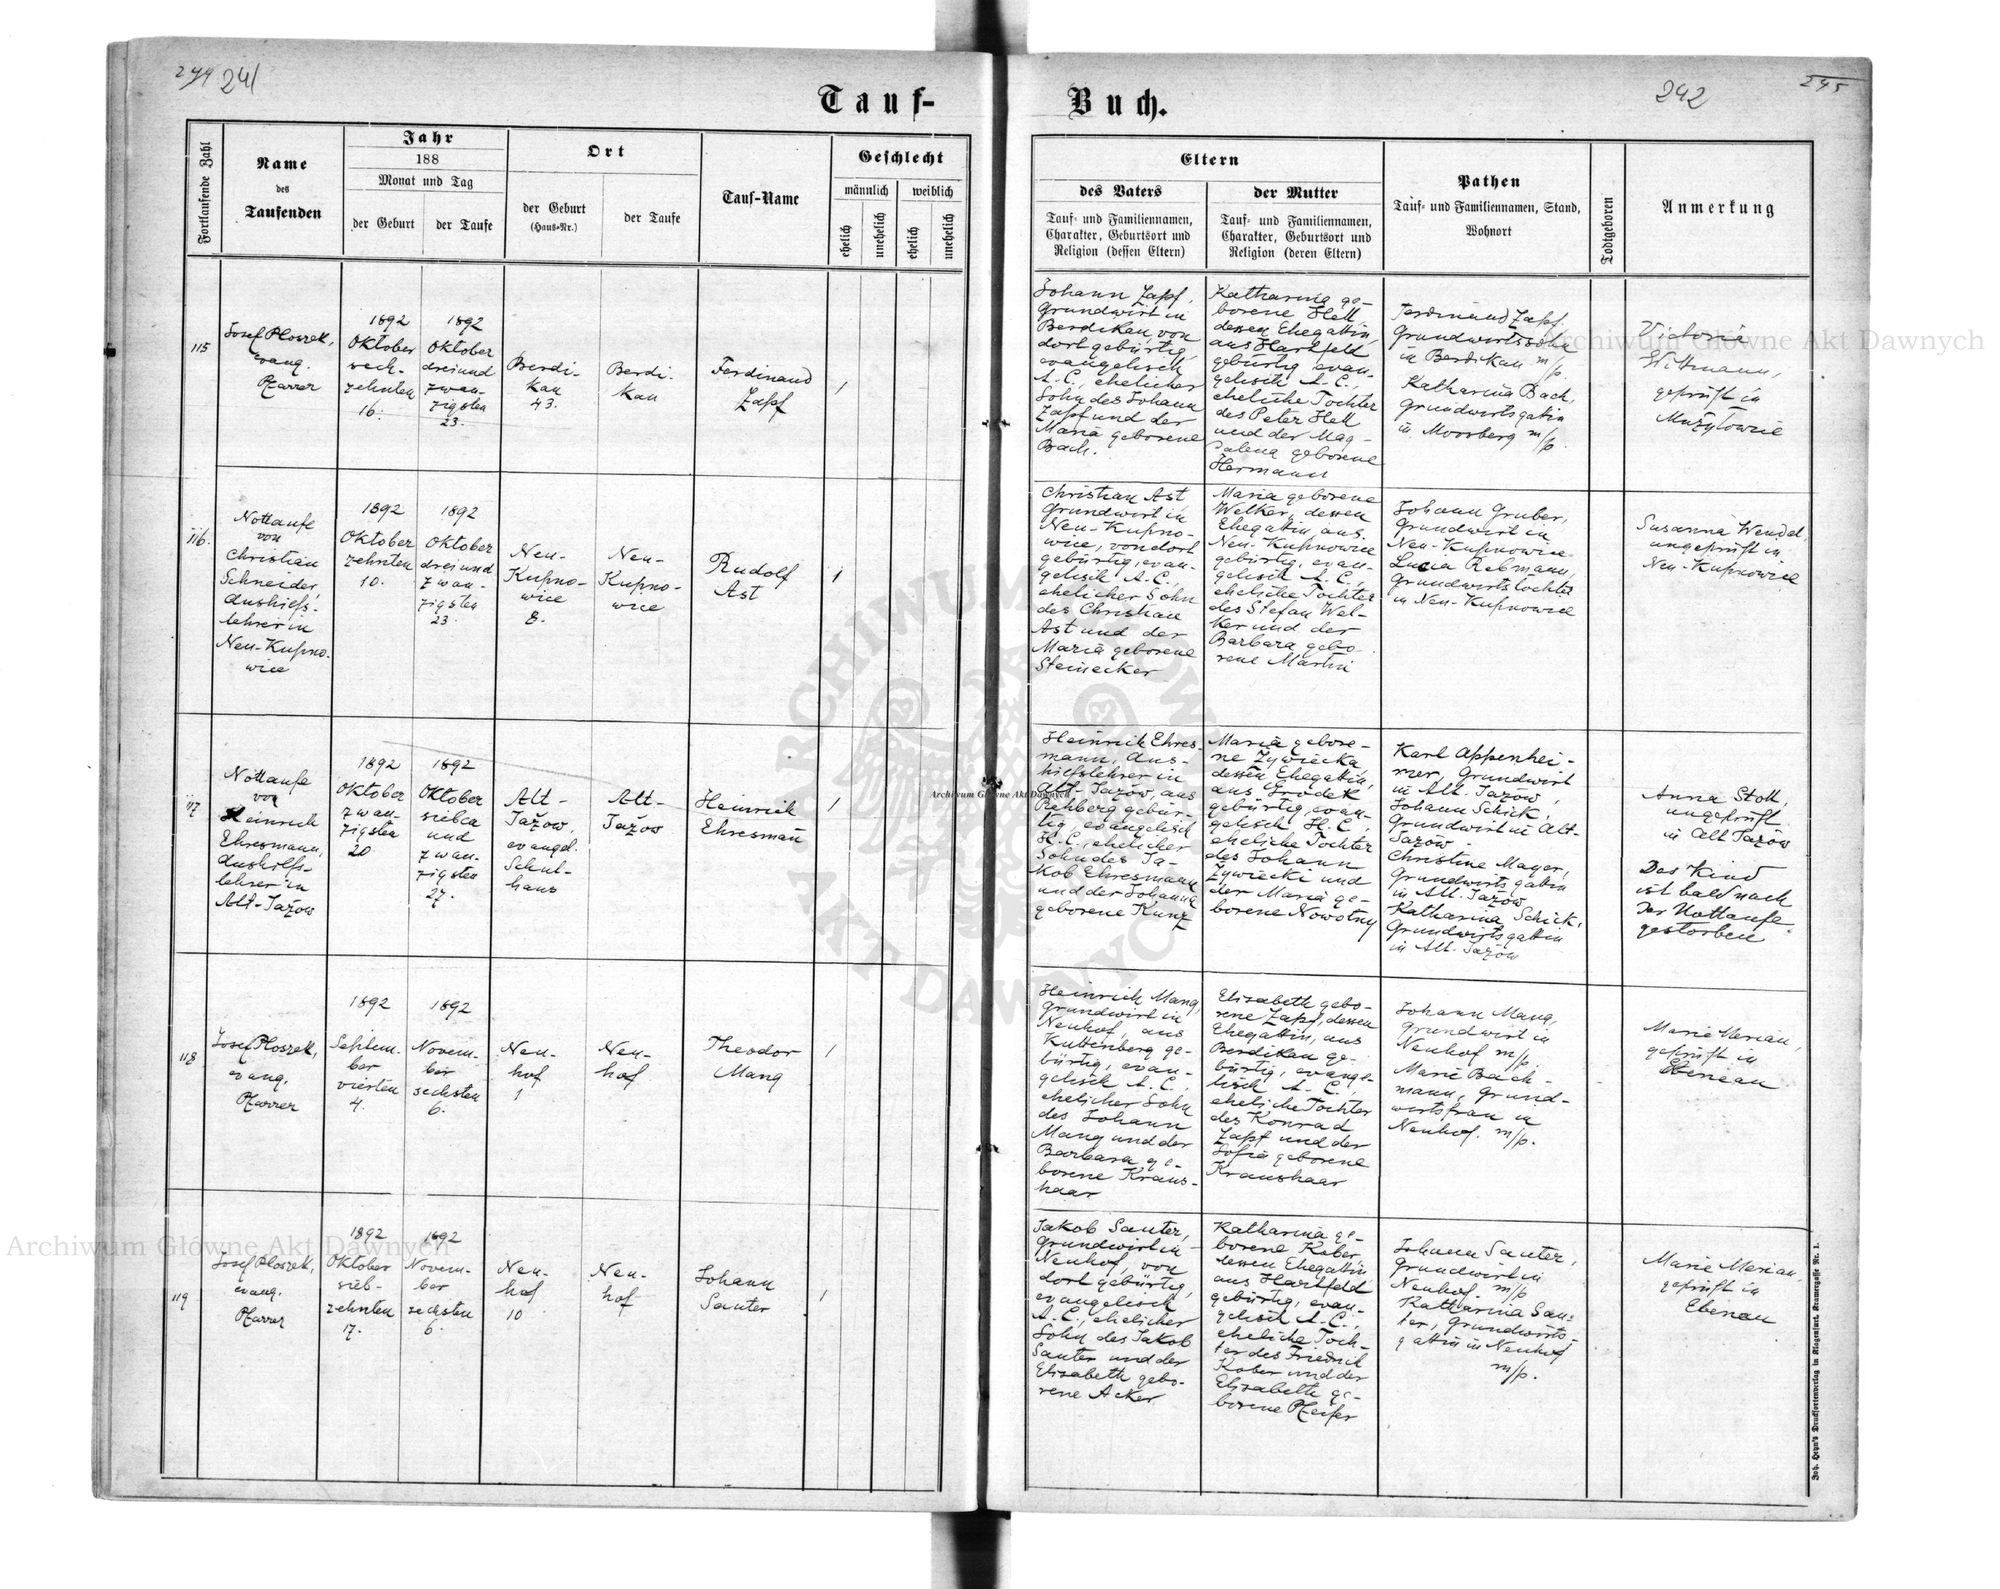 244 241
Tauf-
Buch.
242
245
Fortlaufende Zahl
Name
des
Taufenden
Jahr
188
Monat und Tag
der Geburt
der Taufe
Ort
der Geburt
(Haus-Nr.)
der Taufe
Tauf-Name
Geschlecht
männlich
weiblich
ehelich
unehelich
ehelich
unehelich
Eltern
des Vaters
Tauf- und Familiennamen,
Charakter, Geburtsort und
Religion (dessen Eltern)
der Mutter
Tauf- und Familiennamen,
Charakter, Geburtsort und
Religion (deren Eltern)
Pathen
Tauf- und Familiennamen, Stand,
Wohnort
Todtgeboren
Anmerkung
115
Josef Ploszek,
evang.
Pfarrer
1892
Oktober
sech-
zehnten
16.
1892
Oktober
dreiund
zwan-
zigsten
23.
Berdi-
kau
43.
Berdi-
kau
Ferdinand
Zapf
1
Johann Zapf,
Grundwirt in
Berdikau, von
dort gebürtig,
evangelisch
A.C., ehelicher
Sohn des Johann
Zapf und der
Maria geborene
Bach.
Katharina ge-
borene Hell
dessen Ehegattin,
aus Hartfeld
gebürtig, evan-
gelisch A.C.,
eheliche Tochter
des Peter Hell
und der Mag-
dalena geborene
Hermann
Ferdinand Zapf,
Grundwirtssohn
in Berdikau m/p.
Katharina Bach,
Grundwirtsgattin
in Moosberg m/p.
Wittmann,
geprüft in
Mużyłowice
116.
Nottaufe
von
Christian
Schneider
Aushilfs-
lehrer in
Neu-Kupno-
wice
1892
Oktober
zehnten
10.
1892
Oktober
dreiund
zwan-
zigsten
23.
Neu-
Kupno-
wice
8.
Neu-
Kupno-
wice
Rudolf
Ast
1
Christian Ast
Grundwirt in
Neu-Kupno-
wice, von dort
gebürtig, evan-
gelisch A.C.,
ehelicher Sohn
des Christian
Ast und der
Maria geborene
Steinecker
Maria geborene
Welker, dessen
Ehegattin aus
Neu-Kupnowice
gebürtig, evan-
gelisch A.C.,
eheliche Tochter
des Stefan Wel-
ker und der
Barbara gebo-
rene Martin
Johann Gruber,
Grundwirt in
Neu-Kupnowice
Lucia Rebmann,
Grundwirtstochter
in Neu-Kupnowice
Susanna Wendel,
ungeprüft in
Neu-Kupnowice
117
Nottaufe
von
Heinrich
Ehresmann,
Aushilfs-
lehrer in
Alt-Jażow
1892
Oktober
zwan-
zigsten
20.
1892
Oktober
sieben
und
zwan-
zigsten
27.
Alt-
Jażow,
evangel.
Schul-
haus
Alt-
Jażow
Heinrich
Ehresmann
1
Heinrich Ehres-
mann, Aus-
hilfslehrer in
Alt-Jażow, aus
Rehberg gebür-
tig, evangelisch
H.C., ehelicher
Sohn des Ja-
kob Ehresmann
und der Johanna
geborene Kunz
Maria gebore-
ne Żywiecka,
dessen Ehegattin,
aus Grodek
gebürtig, evan-
gelisch H.C.,
eheliche Tochter
des Johann
Żywiecki und
der Maria ge-
borene Nowotny
Karl Appenhei-
mer, Grundwirt
in Alt-Jażow,
Johann Schick,
Grundwirt in Alt-
Jażow.
Christine Mayer,
Grundwirtsgattin
in Alt-Jażow
Katharina Schick,
Grundwirtsgattin
in Alt-Jażow
Anna Stoll,
ungeprüft
in Alt Jażow
Das Kind
ist bald nach
der Nottaufe
gestorben
118
Josef Ploszek,
evang.
Pfarrer
1892
Septem-
ber
vierten
4.
1892
Novem-
ber
sechsten
6.
Neu-
hof
1
Neu-
hof
Theodor
Mang
1
Heinrich Mang,
Grundwirt in
Neuhof, aus
Kuttenberg ge-
bürtig, evan-
gelisch A.C.,
ehelicher Sohn
des Johann
Mang und der
Barbara ge-
borene Kraus-
haar
Elisabeth gebo-
rene Zapf, dessen
Ehegattin, aus
Berdikau ge-
bürtig, evange-
lisch A.C.,
eheliche Tochter
des Konrad
Zapf und der
Sofia geborene
Kraushaar
Johann Mang,
Grundwirt in
Neuhof m/p.
Marie Bach-
mann, Grund-
wirtsfrau in
Neuhof. m/p.
Marie Merian,
geprüft in
Ebenau
119
Josef Ploszek,
evang.
Pfarrer
1892
Oktober
sieb-
zehnten
17.
1892
Novem-
ber
sechsten
6.
Neu-
hof
10
Neu-
hof
Johann
Sauter
1
Jakob Sauter,
Grundwirt in
Neuhof, von
dort gebürtig,
evangelisch
A.C., ehelicher
Sohn des Jakob
Sauter und der
Elisabeth gebo-
rene Acker
Katharina ge-
borene Kober
dessen Ehegattin
aus Hartfeld
gebürtig, evan-
gelisch A.C.,
eheliche Toch-
ter des Friedrich
Kober und der
Elisabeth ge-
borene Pfeifer
Johann Sauter,
Grundwirt in
Neuhof. m/p
Katharina Sau-
ter, Grundwirts-
gattin in Neuhof
m/p.
Marie Merian,
geprüft in
Ebenau
Joh. Heyn's Drucksortenverlag in Klagenfurt, Kramergasse Nr. 1.
Archiwum Główne Akt Dawnych
Archiwum Główne Akt Dawnych
Archiwum Główne Akt Dawnych
ARCHIWUM GŁÓWNE
AKT DAWNYCH